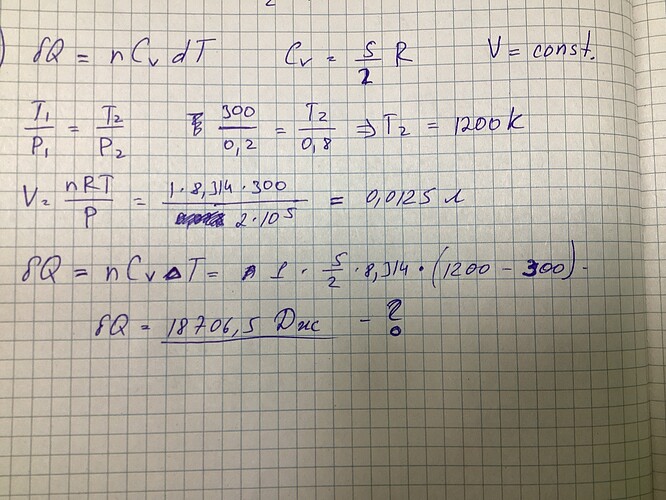 δQ = n Cv dT Cv = 5/2 R V = const.
T₁/P₁ = T₂/P₂ 300/0,2 = T₂/0,8 ⇒ T₂ = 1200 K
V = nRT/P = 1·8,314·300/2·10⁵ = 0,0125 л
δQ = n Cv ΔT = 1 · 5/2 · 8,314 · (1200 - 300) -
δQ = 18706,5 Дж - ?